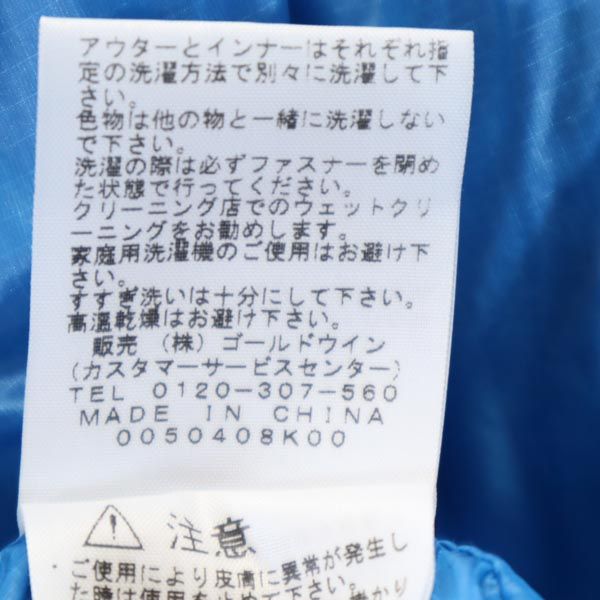 アウターとインナーはそれぞれ指
定の洗濯方法で別々に洗濯して下
さい。
色物は他の物と一緒に洗濯しない
で下さい。
洗濯の際は必ずファスナーを閉め
た状態で行ってください。
クリーニング店でのウェットクリ
ーニングをお勧めします。
家庭用洗濯機のご使用はお避け下
さい。
すすぎ洗いは十分にして下さい。
高温乾燥はお避け下さい。
販売 (株) ゴールドウイン
(カスタマーサービスセンター)
TEL 0120-307-560
MADE IN CHINA
0050408K00
注意
ご使用により皮膚に異常が発生し
た時は使用を